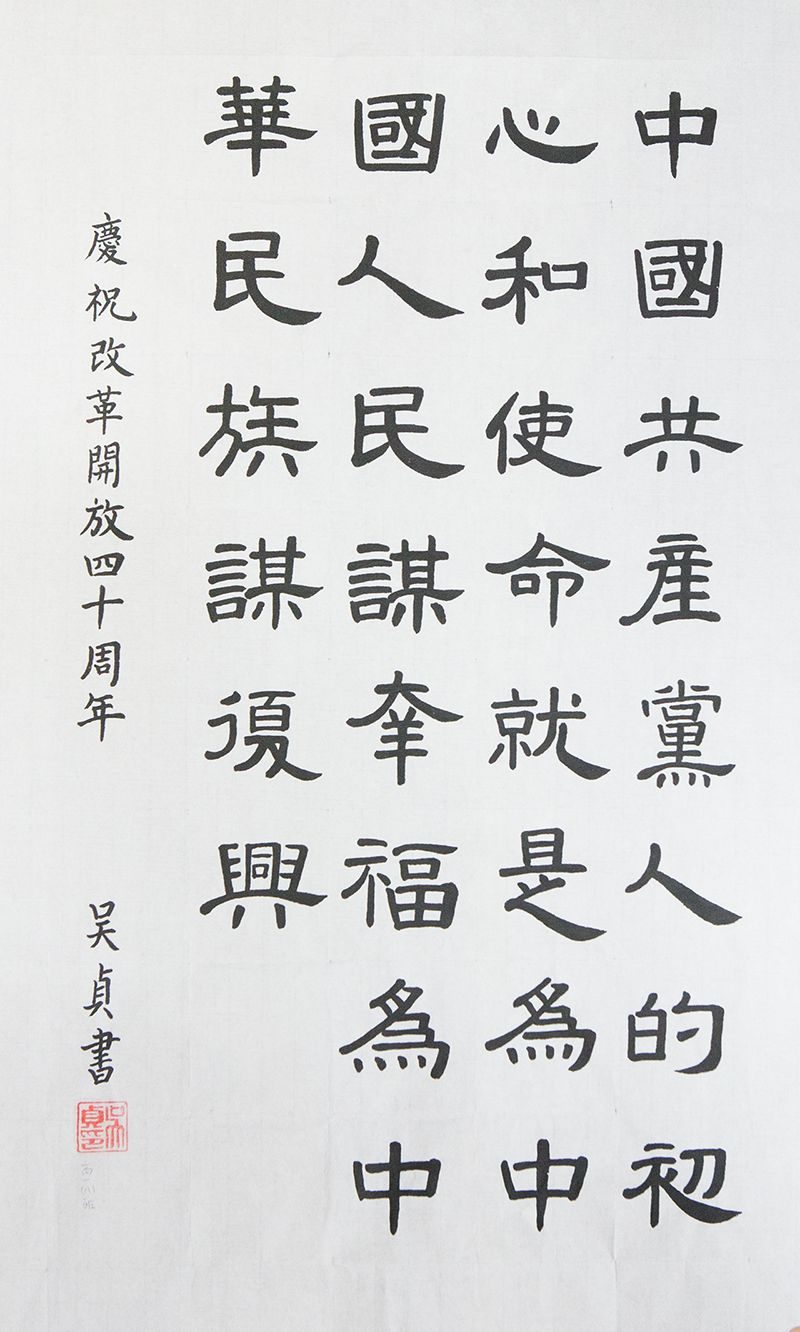 中國共産黨人的初
心和使命就是為中
國人民謀幸福為中
華民族謀復興
慶祝改革開放四十周年
吴貞書
吴貞印